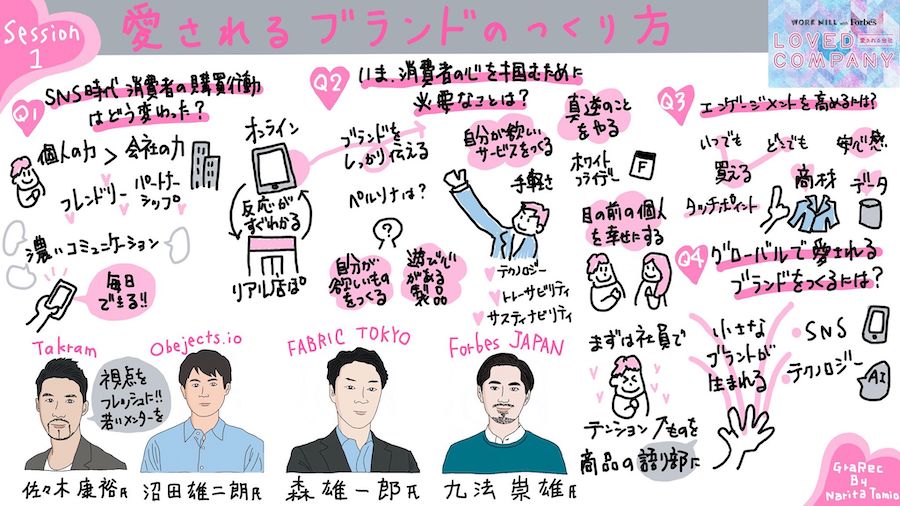 Session
1
愛されるブランドのつくり方
WORK MILL with Forbes
LOVED
愛される会社
COMPANY
Q1
SNS時代 消費者の購買行動
はどう変わった?
個人の力 > 会社の力
フレンドリー
パートナー
シップ
濃いコミュニケーション
毎日
できる!!
オンライン
反応が
すぐわかる
リアル店舗
Q2
いま、消費者の心を掴むために
必要なことは?
ブランドを
しっかり伝える
ペルソナは?
自分が
欲しいもの
をつくる
遊び心
がある
製品
自分が欲しい
サービスをつくる
手軽さ
テクノロジー
トレーサビリティ
サスティナビリティ
真逆のこと
をやる
ホワイト
フライデー
F
目の前の個人
を幸せにする
まずは社員で
テンション⤴ものを
商品の語り部に
Q3
エンゲージメントを高めるには?
いつでも
どこでも
安心感
買える
商材
データ
タッチポイント
Q4
グローバルで愛される
ブランドをつくるには?
小さな
ブランドが
生まれる
SNS
テクノロジー
AI
Takram
視点を
フレッシュに!!
若いメンターを
佐々木康裕氏
Obejects.io
沼田雄二朗氏
FABRIC TOKYO
森雄一郎氏
Forbes JAPAN
九法崇雄氏
GraRec
By
Narita Tomio